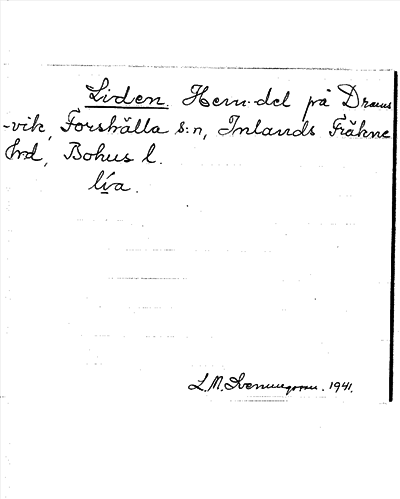 Liden. Hem.del på Drams
-vik, Forshälla s:n, Inlands Fräkne
hrd, Bohus l.
lía.
L.M. Svenungsson. 1941.